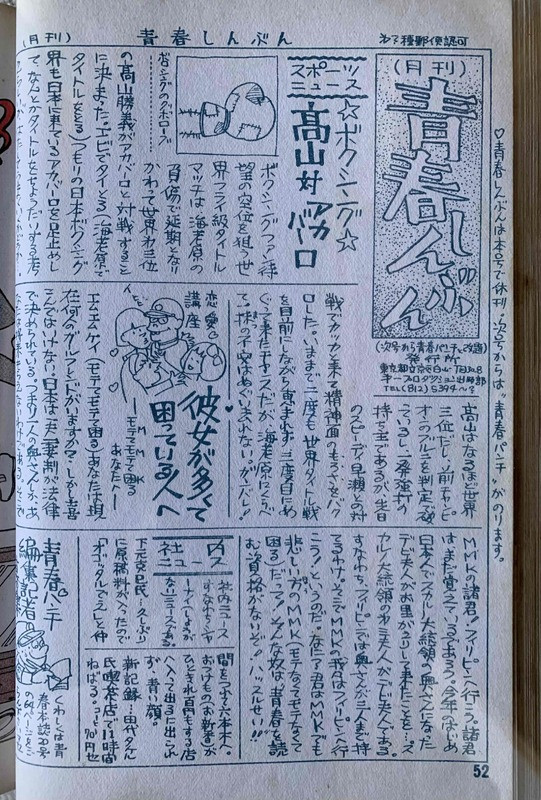 (月刊)
青春しんぶん
オ3種郵便認可
♡青春しんぶんは本号で休刊。次号からは、"青春パンチ"がのります。
(月刊)
青春しんぶん
(次号から青春パンチと改題)
発行所
東京都文京区白山
TEL(812)5394〜5
スポーツ
ニュース
☆ボクシング☆
高山対アカバーロ
ボクシングのグローブ
ボクシングファン待
望の空位を狙う世
界フライ級タイトル
マッチは海老原の
負傷で延期となり
かわって世界オ三位
の高山勝義がアカバーロと対戦すること
に決まった。エビでタイとる(海老原で
タイトルをとる)つもりの日本ボクシング
界も日本に来ているアカバーロを足止めし
て、なんとかタイトルをせようとする考
高山はなるほど世界
三位だし、前チャンピ
オンのブルニを判定で破
っているし、二発強打の
持ち主であるが、先日
のスピーディ早瀬との対
戦でカッカと来て精神面のもろさをバク
ロした。いままで二度も世界タイトル戦
を目前にしながら恵まれず、三度目にめ
ぐって来たチャンスだが、海老原にくらべ
恋愛講座
彼女が多くて
困っている人へ
MMK
モテモテで困る
あなたへ
エムエムケイ(モテモテで困る)あなたは現
在何人のガールフレンドがいますか?しかし喜
んではいけない。日本は一夫一妻制が法律
で決められている。つまり一人の奥さんしかあ
MMKの諸君!フィリピンへ行こう。諸君
はまだ覚えているであろう。今年のはじめ
日本人でスカルノ大統領の奥さんになった
デビ夫人がお里がえりして来たことを…ス
カルノ大統領のオ三夫人がデビ夫人である。
すなわち、フィリピンでは奥さんが三人まで持
てるわけ。そこでMMKの我々はフィリピンへ行
こう!というのだ。なに?君はMMKでも
悲しい方のMMK(モテなくてモテなくて
困る)だって!そんな奴は"青春"を読
む資格がないぞ。ハッスルせい!!
社内
ニュース
社内ニュース
すなわち シャ
ナイでしょうが
ないニュースである。
下元克己氏…久しぶり
に原稿料が入ったので
「オゴッタルデエ」と仲
間をつれて六本木へ。
おけもの(お新香)が
ひときれ百円もする店
へ入って出るに出られ
ず、青い顔。
新記録…田代タん
氏喫茶店で11時間
ねばる。コーヒー70円也
青春パンチ
編集記者
くわしくは青
春本誌の
52